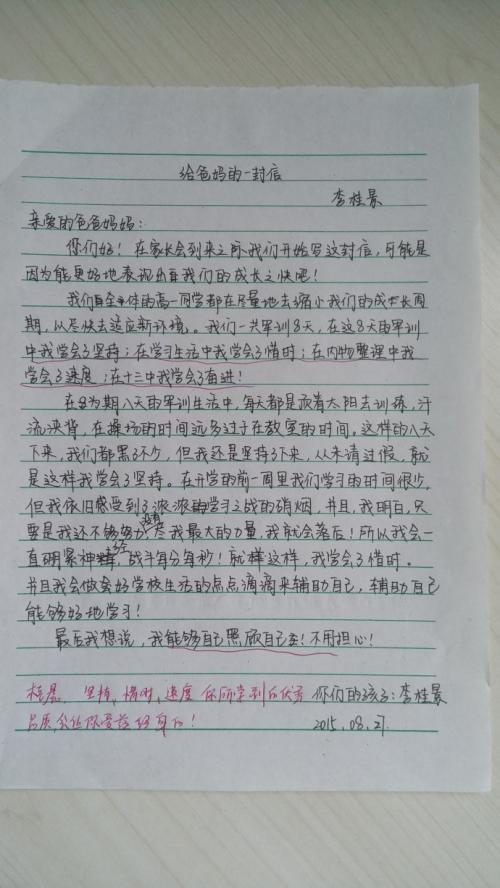 给爸妈的一封信
李桂景
亲爱的爸爸妈妈:
你们好!在家长会到来之际我们开始写这封信,可能是
因为能更好地表现出我们的成长之快吧!
我们全体的高一同学都在尽量地去缩小我们的成长周
期,从尽快去适应新环境。我们一共军训8天,在这8天的军训
中我学会了坚持;在学习生活中我学会了惜时;在内物整理中我
学会了速度;在十三中我学会了奋进!
在为期八天的军训生活中,每天都是顶着太阳去训练,汗
流浃背,在操场的时间远多过于在教室的时间。这样的八天
下来,我们都黑了不少,但我还是坚持了下来,从未请过假,就
是这样我学会了坚持。在开学的前一周里我们学习的时间很少,
但我依旧感受到了派派学习之战的硝烟,并且,我明白,只
要是我还不够努力,尽我最大的力量,我就会落后!所以我会一
直绷紧神经,战斗每分每秒!就样这样,我学会了惜时。
并且我会做会好学校生活的点点滴滴来辅助自己,辅助自己
能够好地学习!
最后我想说,我能够自己照顾自己!不用担心!
你们的孩子:李桂景
坚持,惜时,速度你所学到的优秀
品质,会让你受益终身的!
2015.08.27